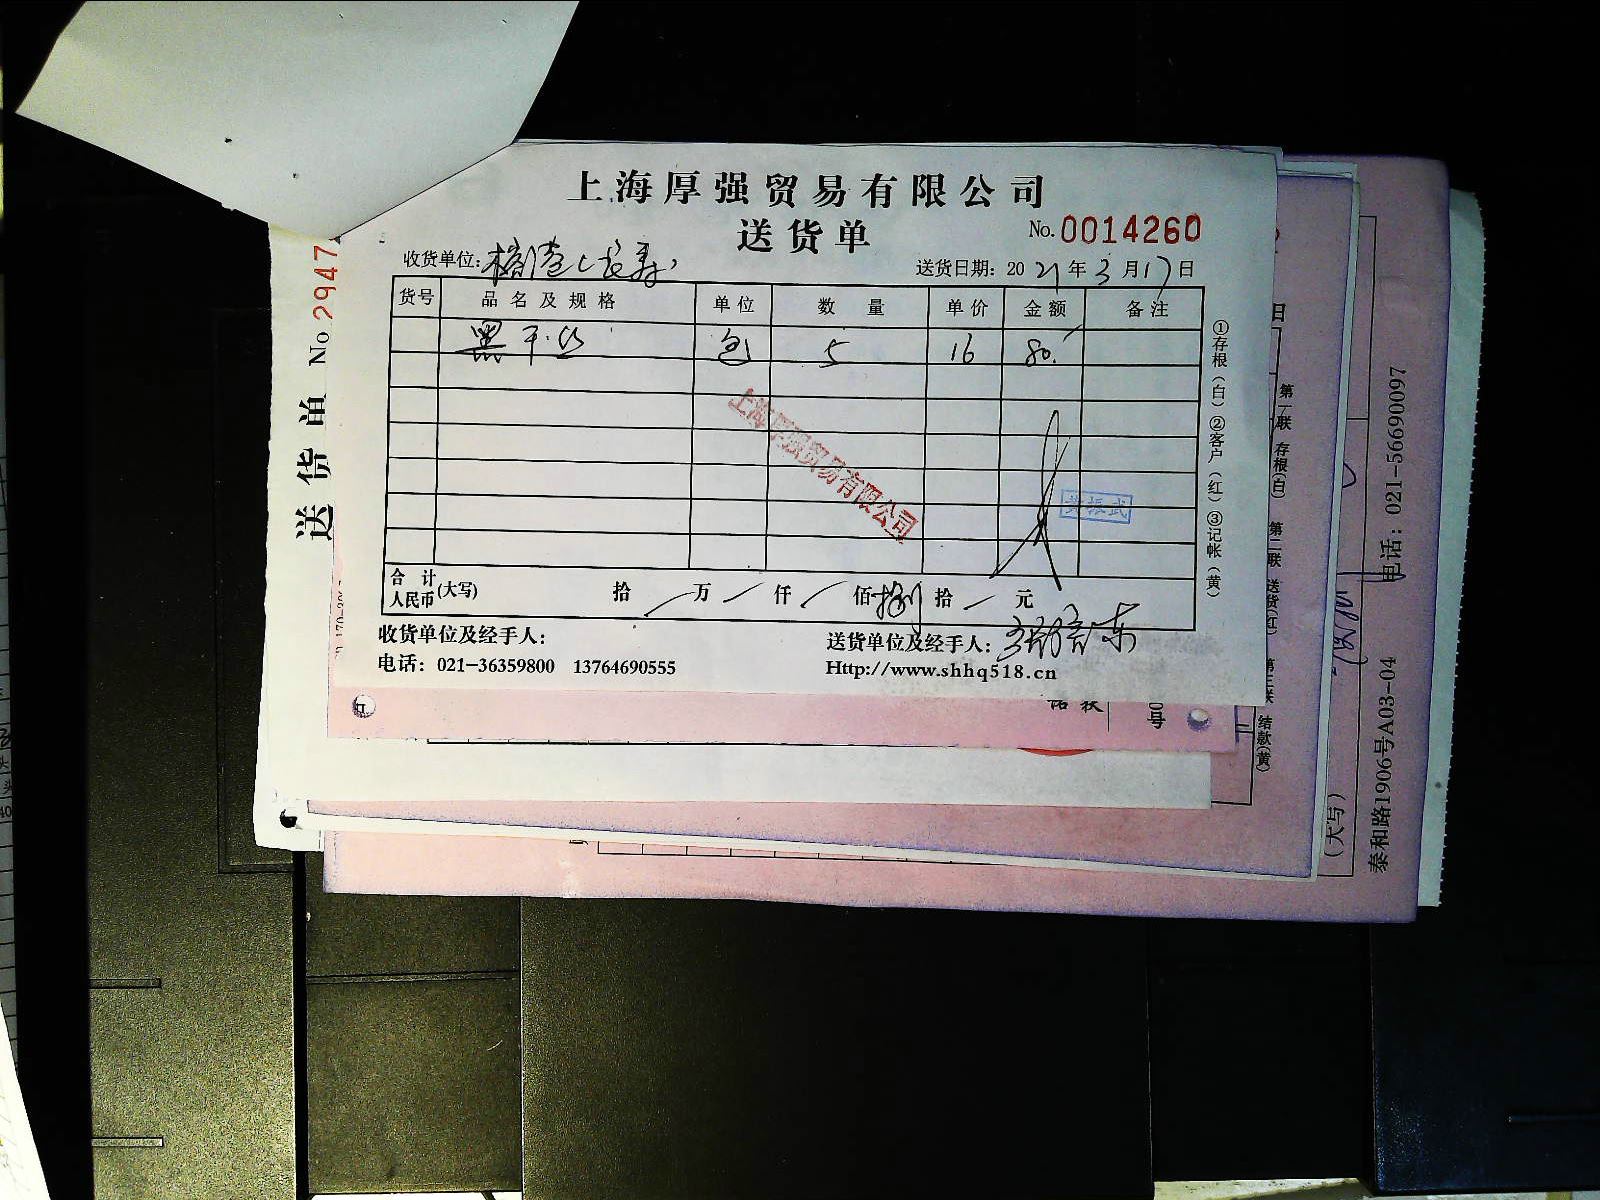 上海厚强贸易有限公司
送货单
No. 0014260
收货单位:
送货日期: 2021年3月17日
货号 品名及规格 单位 数量 单价 金额 备注
黑干丝 包 5 16 80.
上海厚强贸易有限公司
黄振武
合计人民币(大写) 拾 万 仟 佰 捌 拾 元
收货单位及经手人:
送货单位及经手人:
电话: 021-36359800 13764690555
Http://www.shhq518.cn
①存根(白) ②客户(红) ③记帐(黄)
送货单 No 2947
第一联 存根(白) 第二联 送货(红) 第三联 结款(黄)
(大写)
泰和路1906号A03-04 电话: 021-56690097